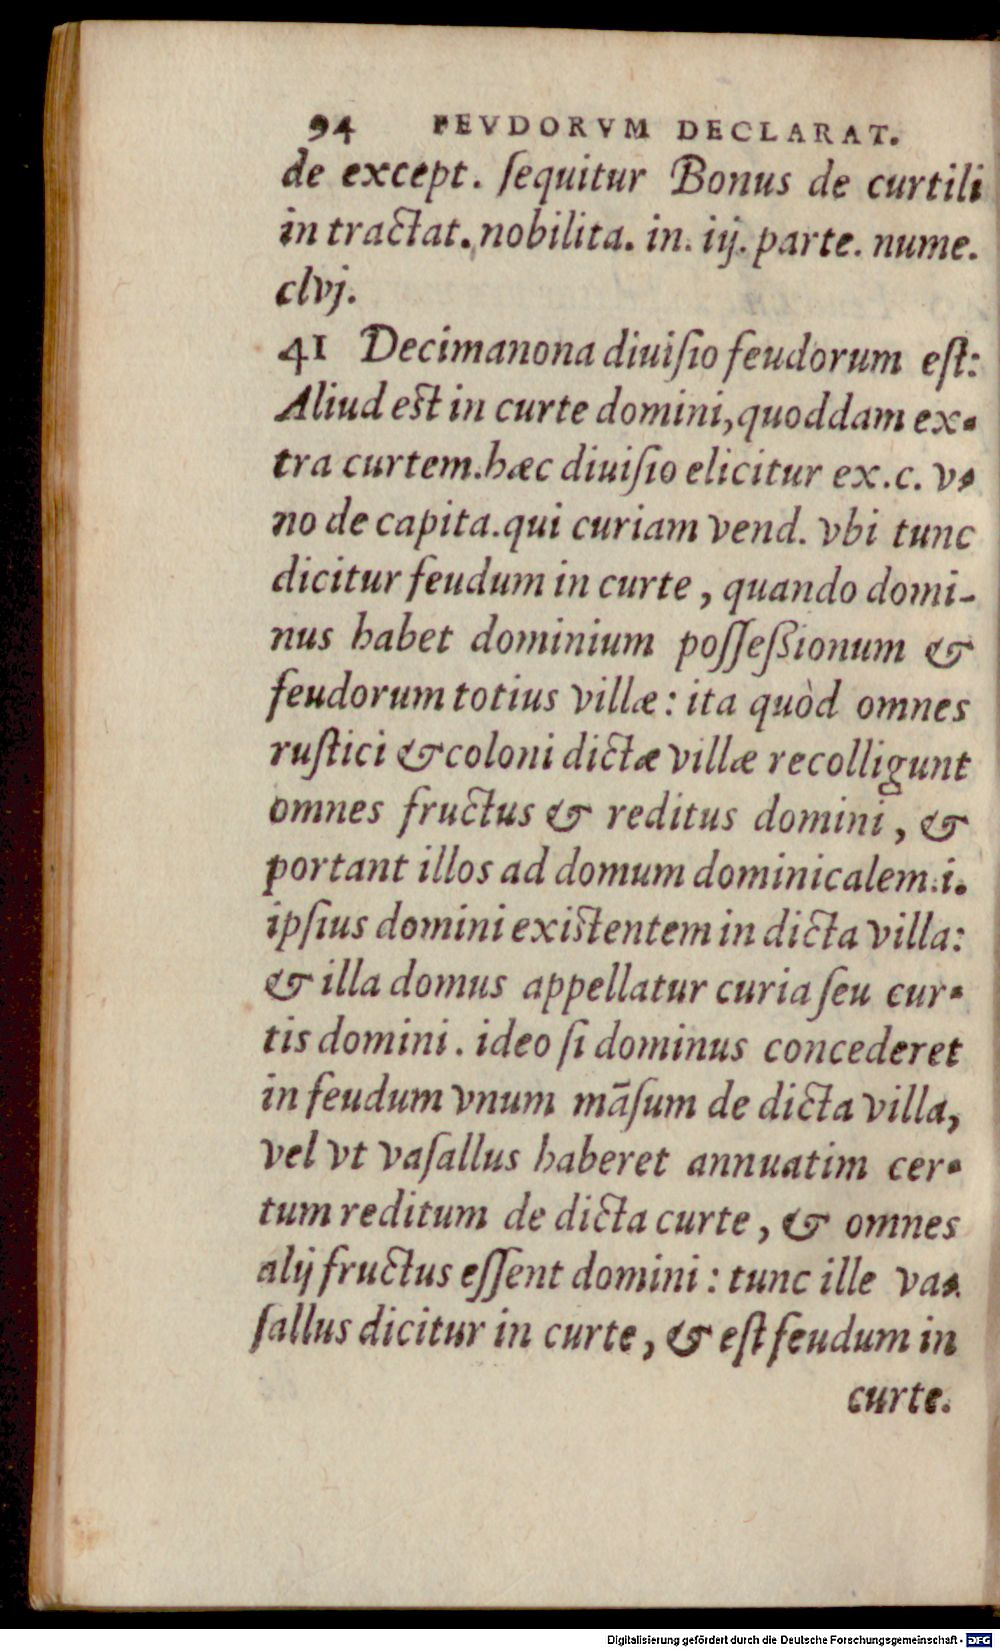 94 FEVDORVM DECLARAT.
de except. ſequitur Bonus de curtili
in tractat. nobilita. in. iij. parte. nume.
clvj.
41 Decimanona diuiſio feudorum eſt:
Aliud est in curte domini, quoddam ex-
tra curtem. hæc diuiſio elicitur ex. c. v-
no de capita. qui curiam vend. vbi tunc
dicitur feudum in curte, quando domi-
nus habet dominium poſſeſsionum &
feudorum totius villæ: ita quòd omnes
ruſtici & coloni dictæ villæ recolligunt
omnes fructus & reditus domini, &
portant illos ad domum dominicalem .i.
ipſius domini existentem in dicta villa:
& illa domus appellatur curia ſeu cur-
tis domini. ideo ſi dominus concederet
in feudum vnum māſum de dicta villa,
vel vt vaſallus haberet annuatim cer-
tum reditum de dicta curte, & omnes
alij fructus eſſent domini: tunc ille va-
ſallus dicitur in curte, & eſt feudum in
curte.
Digitalisierung gefördert durch die Deutsche Forschungsgemeinschaft - DFG